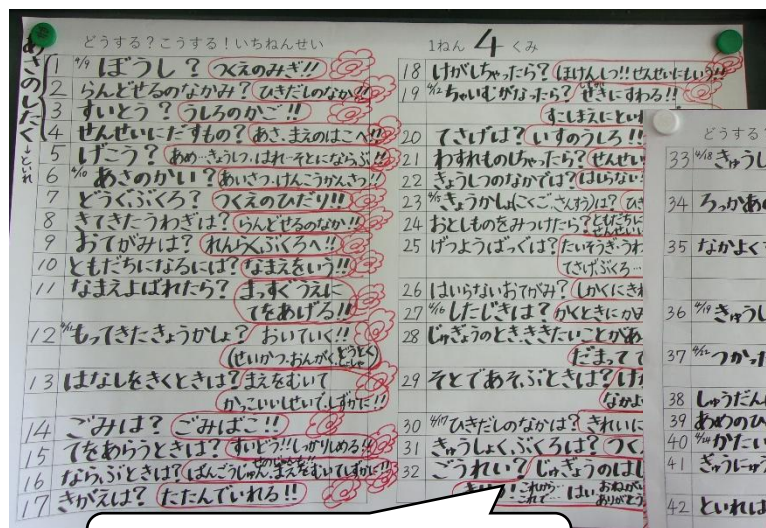 どうする？こうする！いちねんせい
あさのしたく←といれ
1 4/9 ぼうし？ つくえのみぎ!!
2 らんどせるのなかみ？ ひきだしのなか!!
3 すいとう？ うしろのかご!!
4 せんせいにだすもの？ あさ、まえのはこへ!!
5 げこう？ あめ…きょうしつ、はれ…そとにならぶ!!
6 4/10 あさのかい？ あいさつ、けんこうかんさつ!!
7 どうぐぶくろ？ つくえのひだり!!
8 きてきたうわぎは？ らんどせるのなか!!
9 おてがみは？ れんらくぶくろへ!!
10 ともだちになるには？ なまえをいう!!
11 なまえよばれたら？ まっすぐうえに
てをあげる!!
12 もってきたきょうかしょ？ おいていく!!
(せいかつ、おんがく、どうとく
13 はなしをきくときは？ まえをむいて
かっこいいしせいで、しずかに!!
14 ごみは？ ごみばこ!!
15 てをあらうときは？ すいどう!!しっかりしめる!!
16 ならぶときは？ ばんごうじゅん、まえをむいてしずかに!!
せのじゅん
17 きがえは？ たたんでいれる!!
1ねん 4 くみ
18 けがしちゃったら？ ほけんしつ!!せんせいにもいう!!
19 4/12 ちゃいむがなったら？ せきにすわる!!
すこしまえにといれ
20 てさげは？ いすのうしろ!!
21 わすれものしちゃったら？ せんせい
22 きょうしつのなかでは？ はしらない
23 4/15 きょうかしょ(こくご、さんすう)は？ ひき
24 おとしものをみつけたら？ ともだちに
せんせい
25 げつようばっぐは？ たいそうぎ・うわ
てさげぶくろ…
26 はいらないおてがみ？ しかくにきれ
27 4/16 したじきは？ かくときにかな
28 じゅぎょうのとき、ききたいことがあ
だまって て
29 そとであそぶときは？ けが
なかよ
30 4/17 ひきだしのなかは？ きれいに
31 きゅうしょくぶくろは？ つく
32 ごうれい？ じゅぎょうのはし
これから… はい おねがい
これで… ありがとう
どうする？
33 4/18 きゅうし
34 ろっかあの
35 なかよく
36 4/19 きゅうし
37 4/22 つかっ
38 しゅうだん
39 あめのひ
40 4/24 かたい
41 ぎゅうにゅう
42 といれは